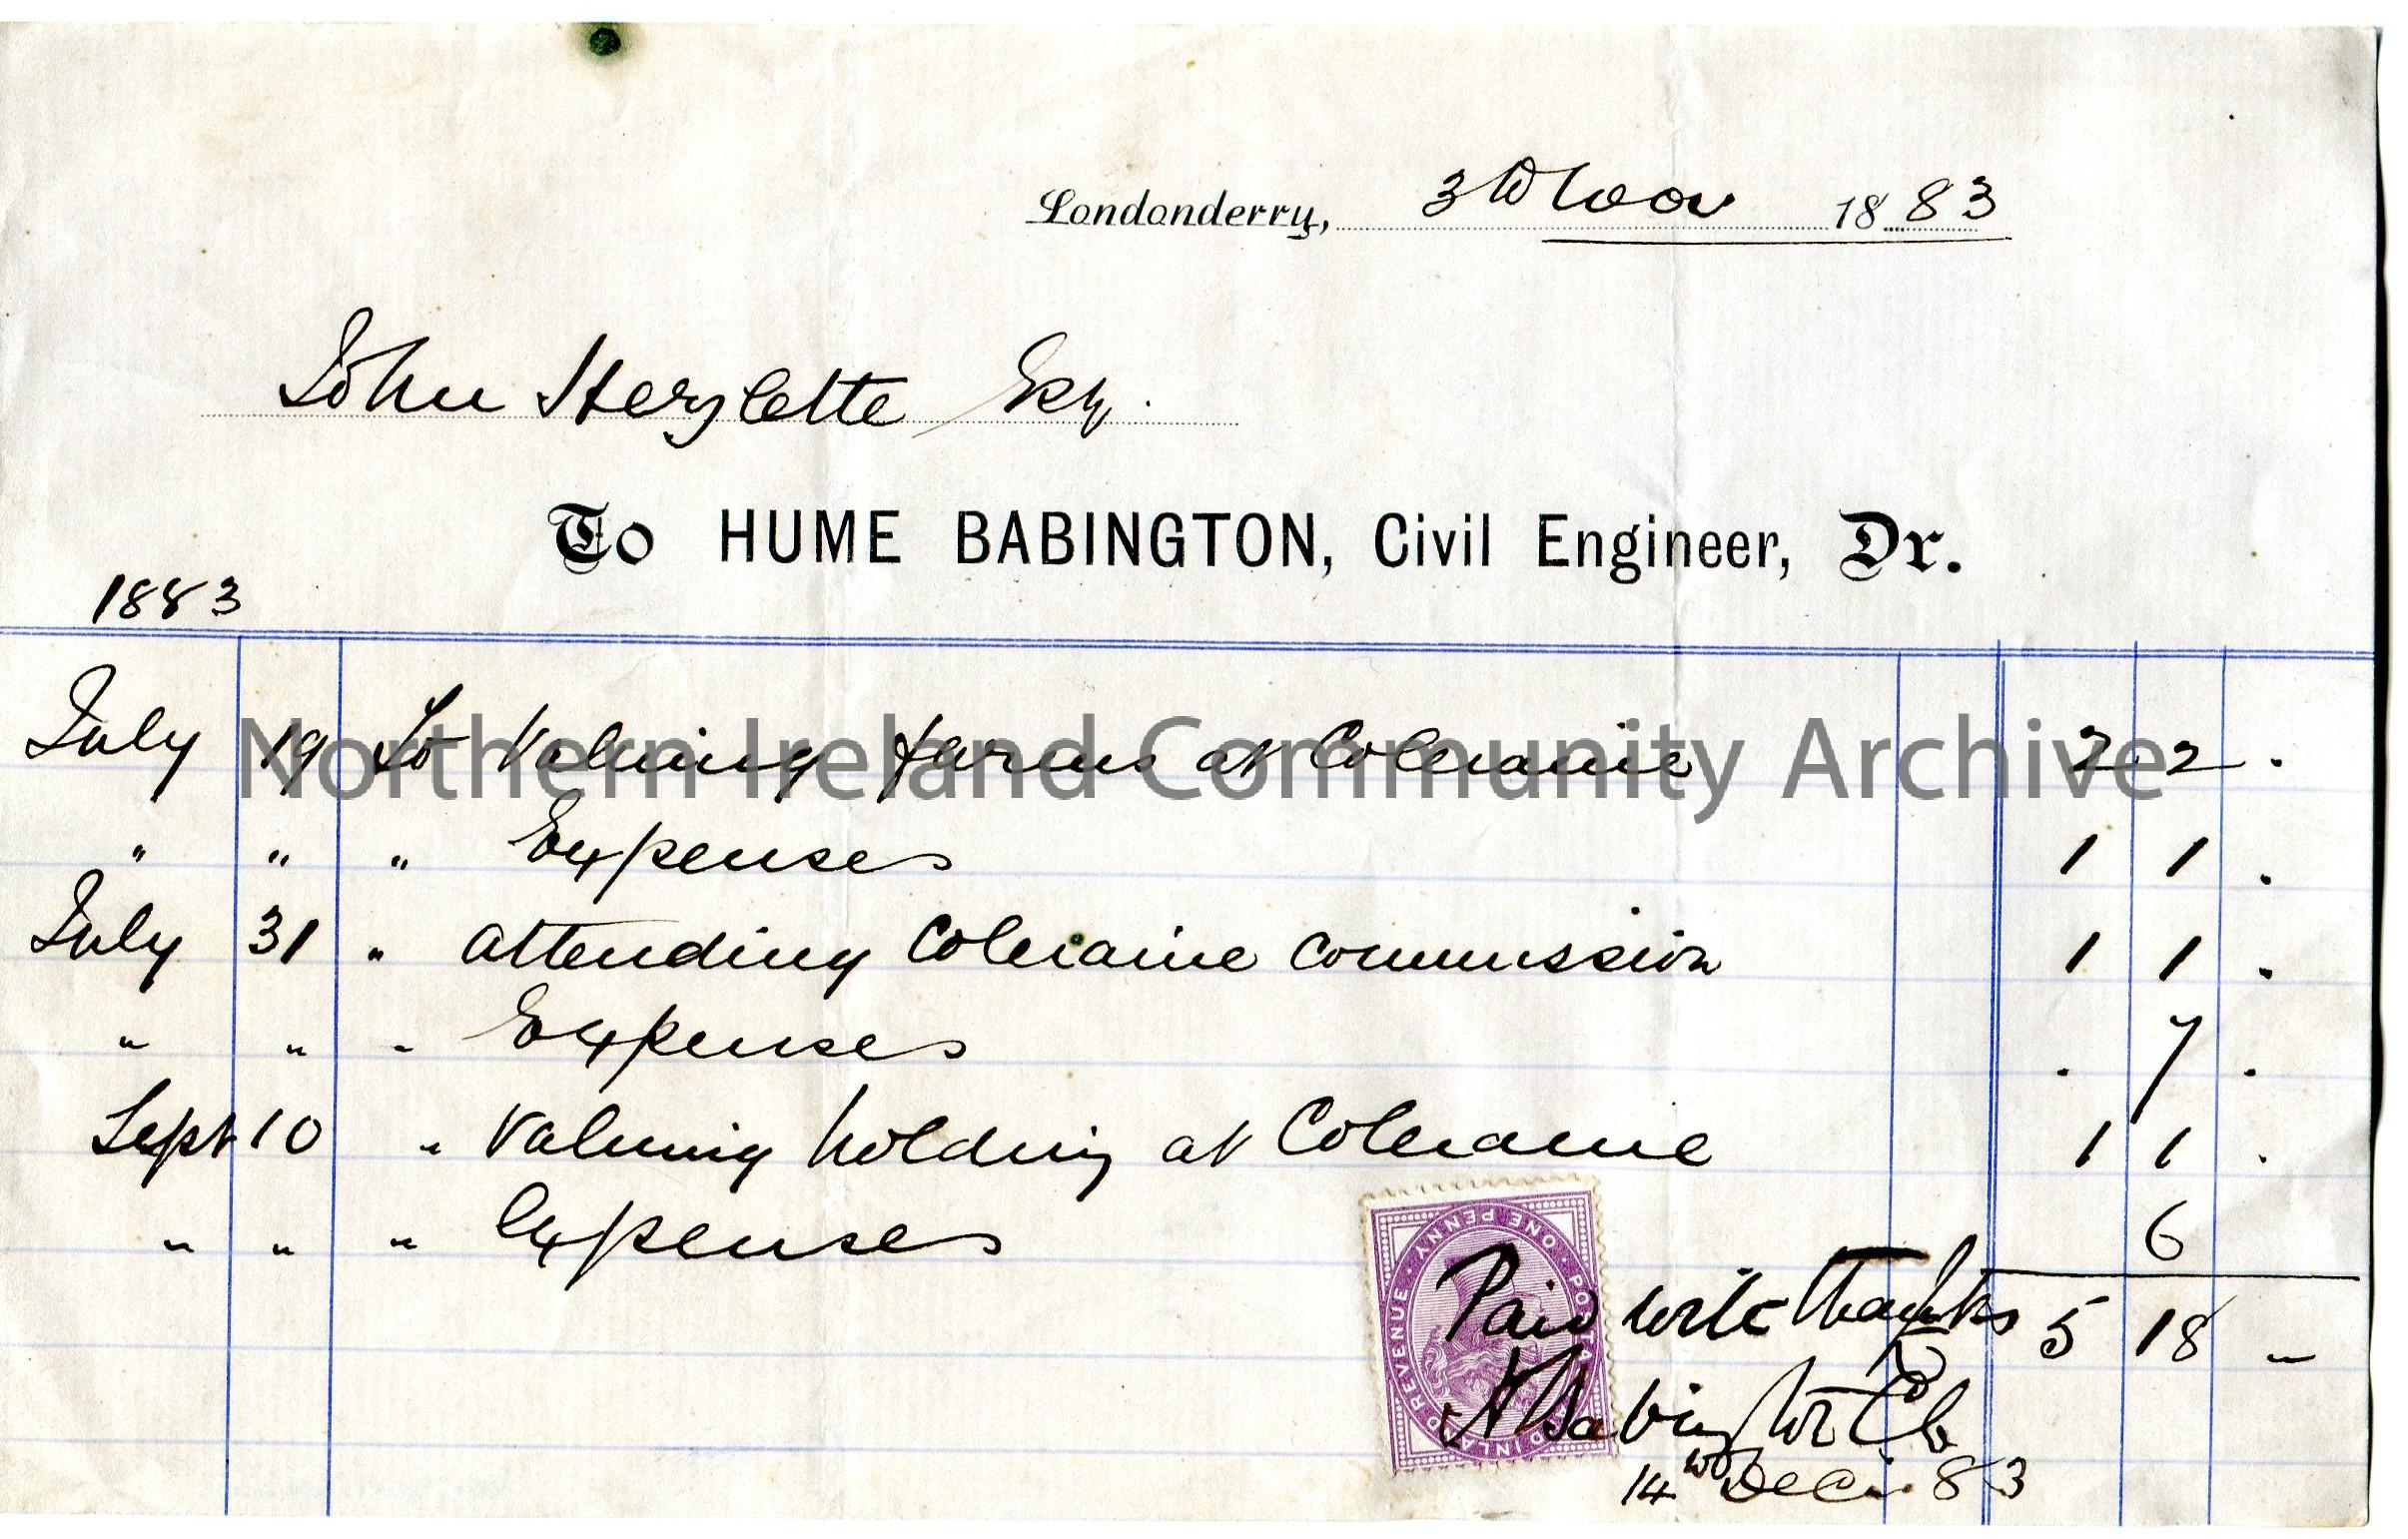 Londonderry, 3rd Nov 1883
John Hezlette Esq.
To HUME BABINGTON, Civil Engineer, Dr.
1883
July 19 To Valuing farms at Coleraine 2 2 .
" " " Expenses 1 1 .
July 31 " attending Coleraine Commission 1 1 .
" " " Expenses . 7 .
Sept 10 " Valuing holding at Coleraine 1 1 .
" " " Expenses 6
5 18 -
Paid with thanks
H Babington CE
14th Decr 83
POSTAGE AND INLAND REVENUE · ONE PENNY ·
Northern Ireland Community Archive